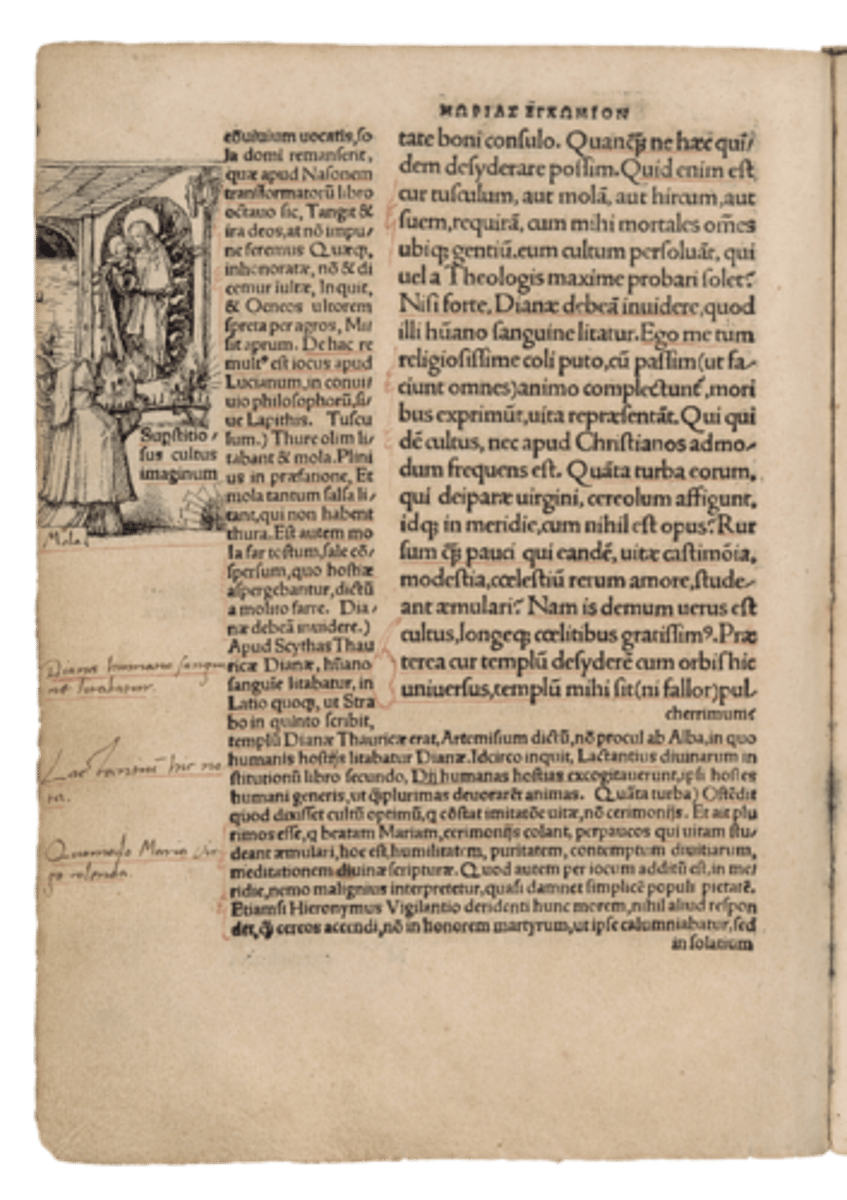 ΜΩΡΙΑΣ ΕΓΚΩΜΙΟΝ
tate boni consulo. Quanq̃ꝫ ne hæc qui/
dem desyderare possim. Quid enim est
cur tusculum, aut molã, aut hircum, aut
suem, requirã, cum mihi mortales oẽs
ubiqꝫ gentiũ, eum cultum persoluãt, qui
uel a Theologis maxime probari solet?
Nisi forte, Dianæ debeã inuidere, quod
illi hũano sanguine litatur. Ego me tum
religiosissime coli puto, cũ passim (ut fa-
ciunt omnes) animo complectunt᷑, mori
bus exprimũt, uita repræsentãt. Qui qui
dẽ cultus, nec apud Christianos admo-
dum frequens est. Quãta turba eorum,
qui deiparæ uirgini, cereolum affigunt,
idqꝫ in meridie, cum nihil est opus? Rur
sum q̃ꝫ pauci qui eandẽ, uitæ castimõia,
modestia, cœlestiũ rerum amore, stude-
ant æmulari? Nam is demum uerus est
cultus, longeqꝫ cœlitibus gratissimꝰ. Præ
terea cur templũ desyderẽ cum orbis hic
uniuersus, templũ mihi sit (ni fallor) pul-
cherrimum?
cõuiuium uocatis, so
la domi remanserit,
quæ apud Nasonem
transformatorũ libro
octauo sic, Tangit &
ira deos, at nõ impu-
ne feremus Quæqꝫ,
inhonoratæ, nõ & di
cemur inultæ, Inquit,
& Oeneos ultorem
spreta per agros, Mi
sit aprum. De hac re
multꝰ est iocus apud
Lucianum, in conui/
uio philosophorũ, si/
ue Lapithis. Tuscu
lum.) Thure olim li/
tabant & mola. Plini
us in præfatione, Et
mola tantum salsa li/
tant, qui non habent
thura. Est autem mo
la far tostum, sale cõ/
spersum, quo hostiæ
aspergebantur, dictũ
a molito farre. Dia/
næ debeã inuidere.)
Apud Scythas Thau
ricæ Dianæ, hũano
sanguĩe litabatur, in
Latio quoqꝫ, ut Stra
bo in quinto scribit,
templũ Dianæ Thauricæ erat, Artemisium dictũ, nõ procul ab Alba, in quo
humanis hostijs litabatur Dianæ. Idcirco inquit, Lactantius diuinarum in
stitutionũ libro secundo, Dij humanas hostias excogitauerunt, ipsi hostes
humani generis, ut q̃plurimas deuorarẽt animas. Quãta turba) Ostẽdit
quod dixisset cultũ optimũ, q cõstat imitatõe uitæ, nõ cerimonijs. Et ait plu
rimos esse, q beatam Mariam, cerimonijs colant, perpaucos qui uitam stu/
deant æmulari, hoc est, humilitatem, puritatem, contemptum diuitiarum,
meditationem diuinæ scripturæ. Quod autem per iocum additũ est, in me/
ridie, nemo malignius interpretetur, quasi damnet simplicẽ populi pietatẽ.
Etiamsi Hieronymus Vigilantio deridenti hunc morem, nihil aliud respon
det, q̃ cereos accendi, nõ in honorem martyrum, ut ipse calumniabatur, sed
in solatium
Supstitio/
sus cultus
imaginum
Mola
Diana humano sangui
ne litabatur.
Lactantiũ hic no
ta.
Quomodo Maria vir
go colenda.